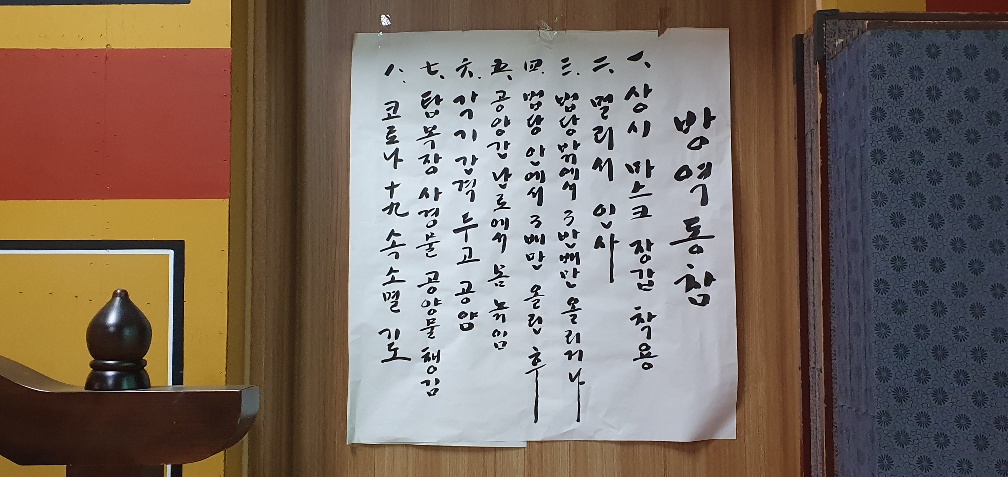 방역동참
一. 상시 마스크 장갑 착용
二. 멀리서 인사
三. 법당 밖에서 3반배만 올리거나
四. 법당 안에서 3배만 올린 후
五. 공양간 난로에서 몸 녹임
六. 각기 간격 두고 공양
七. 탑 복장 사경물 공양물 챙김
八. 코로나 十九 속 소멸 기도